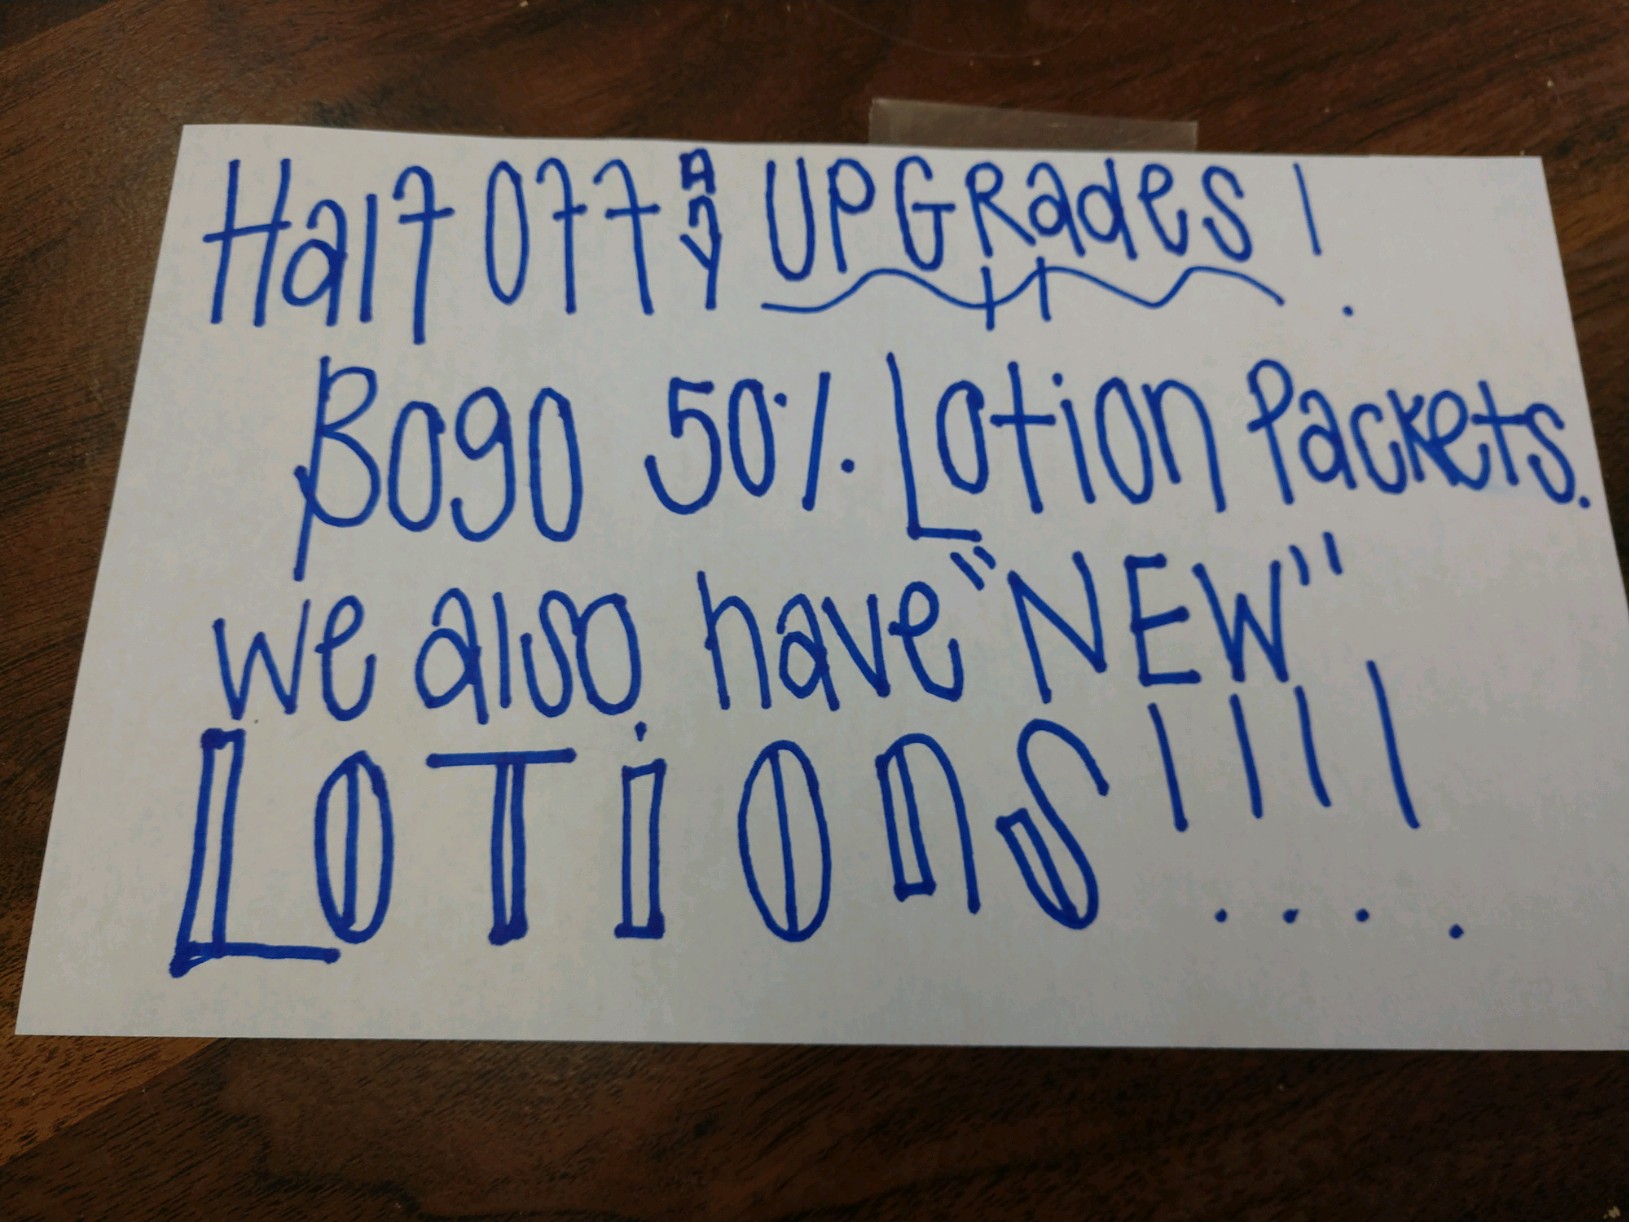 Half Off any UPGRades!
Bogo 50% Lotion Packets.
we also have "NEW"
LOTiOnS!!!!